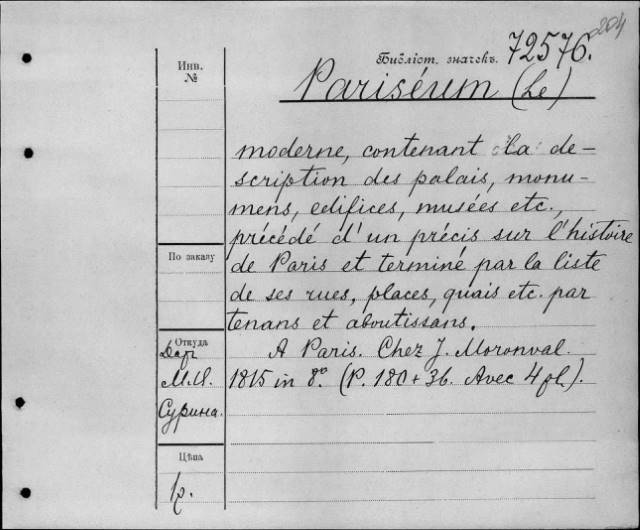 204
Библіот. значекъ. 72576.
Инв.
№
Pariséum (Le)
moderne, contenant la de-
scription des palais, monu-
mens, edifices, musées etc.,
précédé d'un précis sur l'histoire
По заказу
de Paris et terminé par la liste
de ses rues, places, quais etc. par
tenans et aboutissans.
Откуда
Даръ
М.И.
Сурина.
A Paris. Chez J. Moronval.
1815 in 8°. (P. 180 + 36. Avec 4 pl.).
Цѣна
1р.